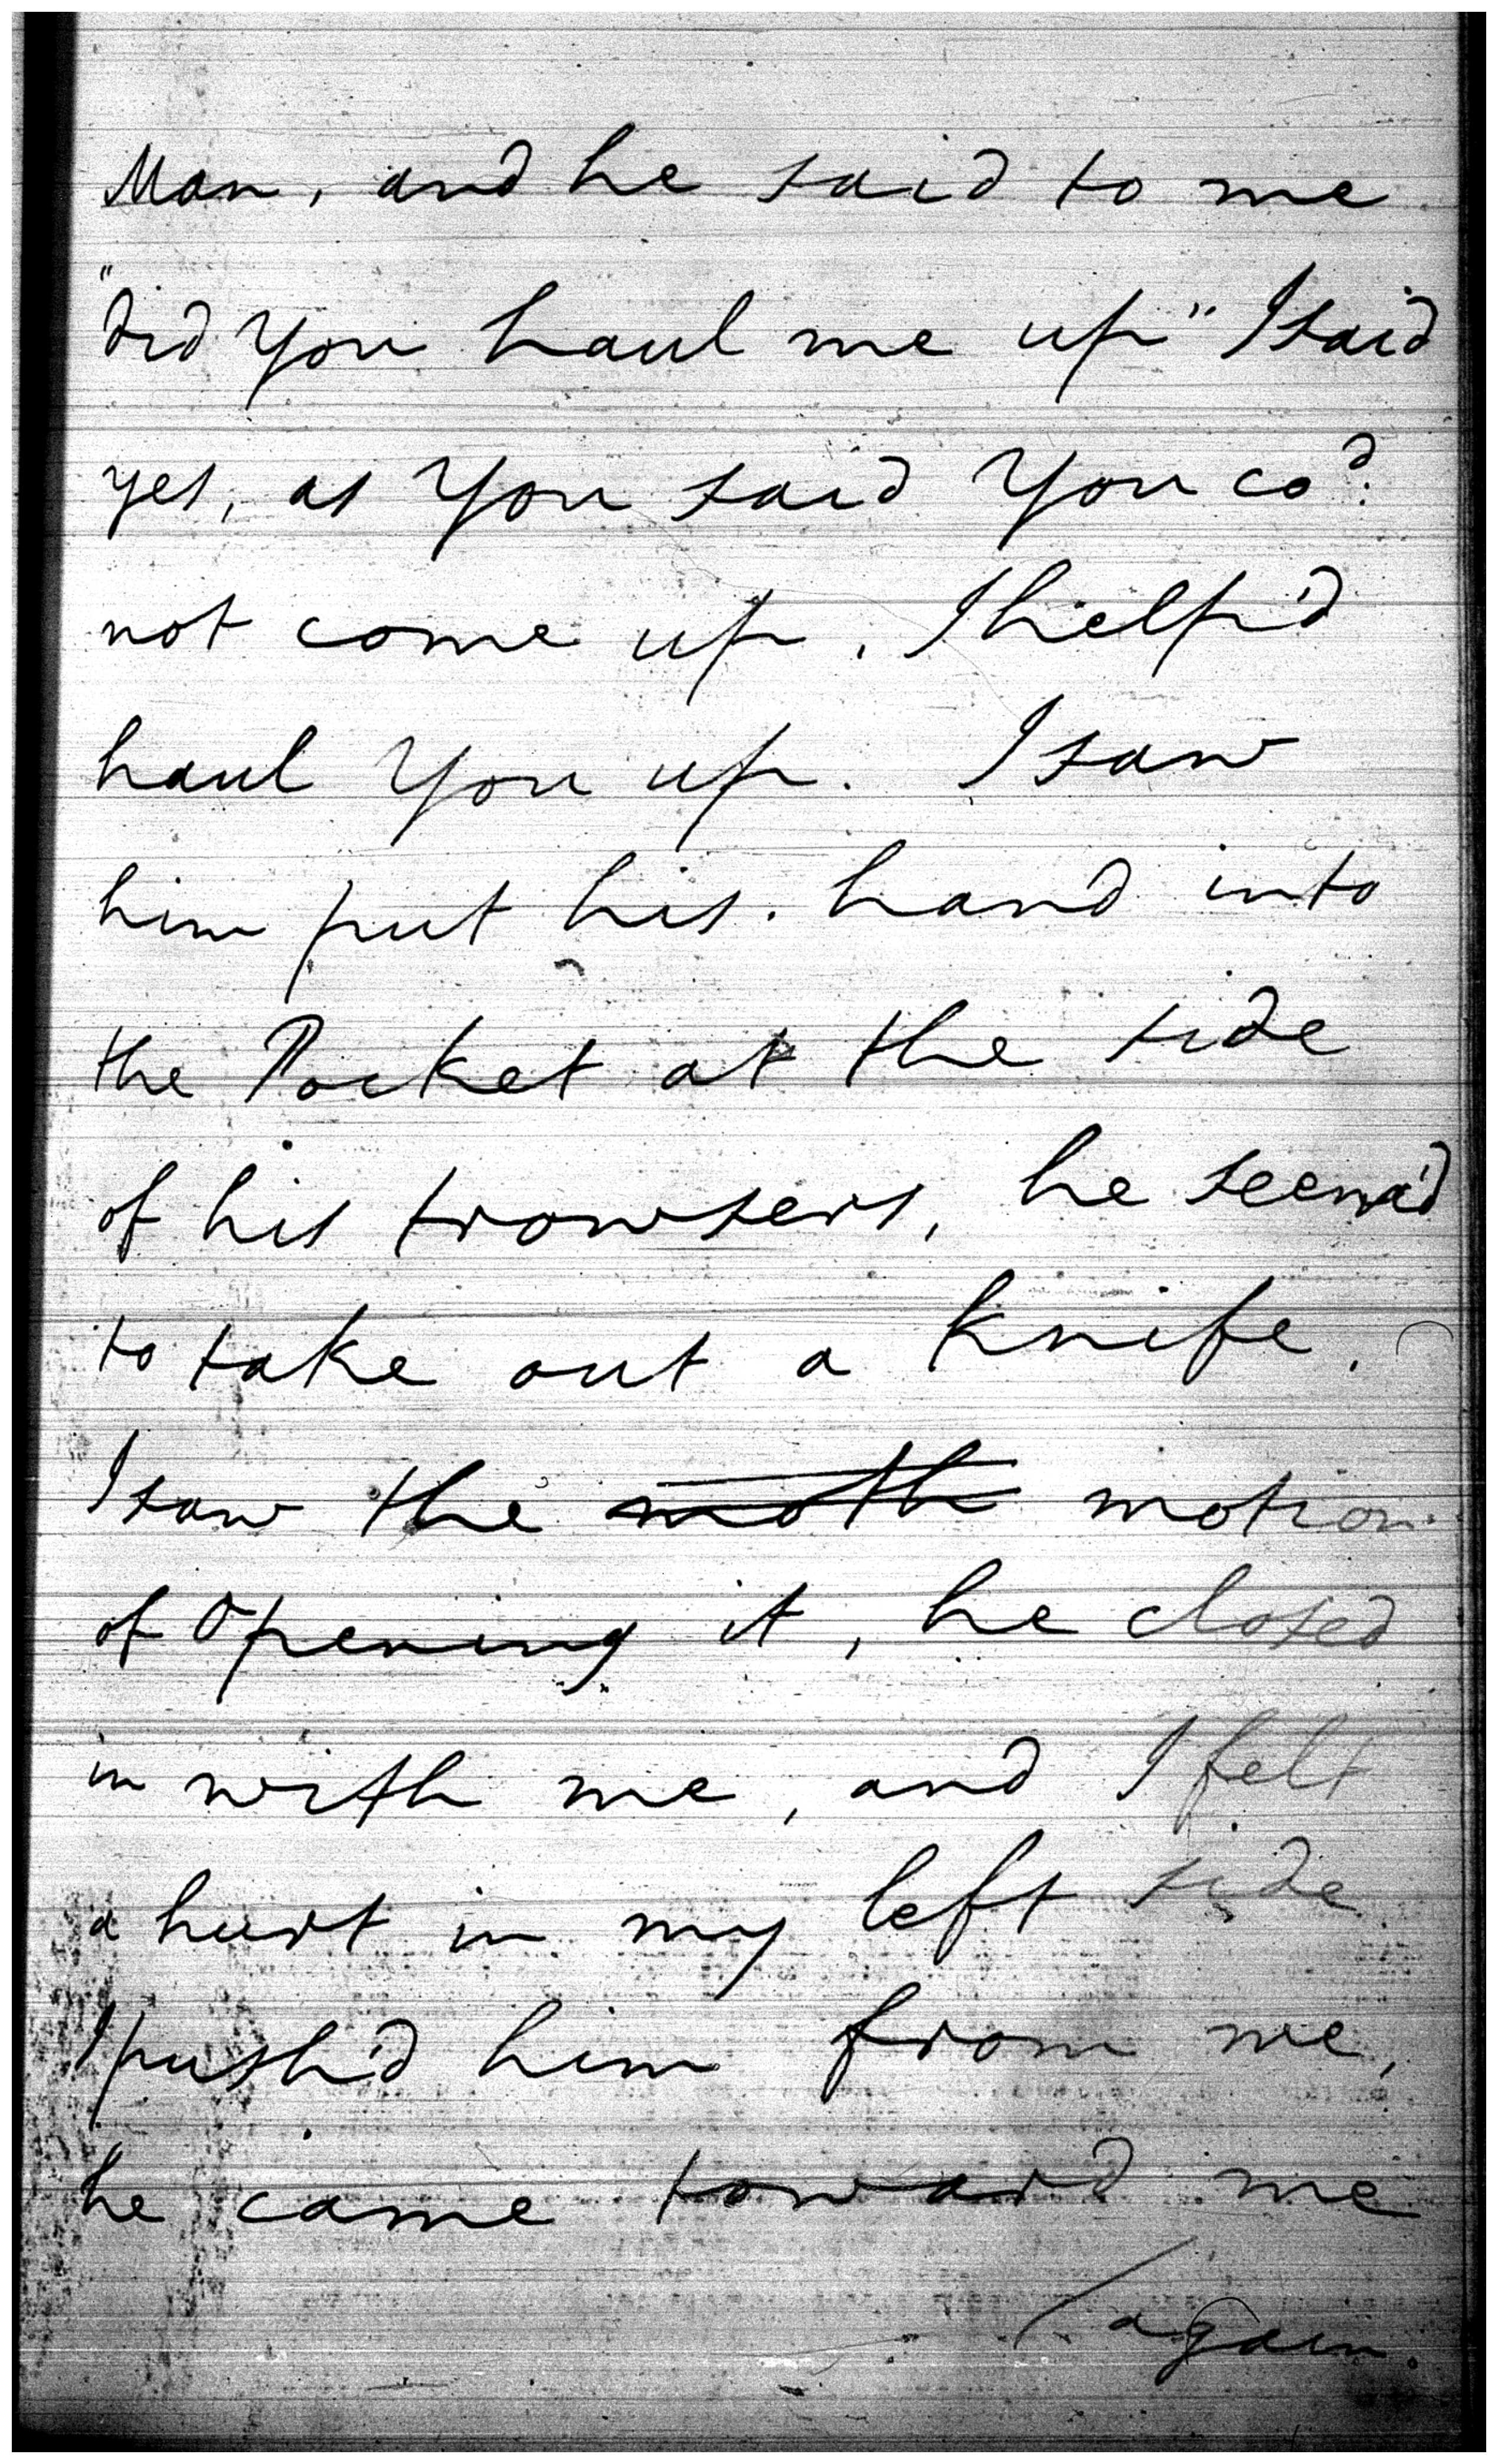 Man, and he said to me
"did You haul me up" I said
yes, as You said You co.d
not come up, I help'd
haul You up. I saw
him put his hand into
the Pocket at the side
of his trowsers, he seem'd
to take out a knife.
I saw the moth motion
of Opening it, he closed
in with me, and I felt
a hurt in my left side
I push'd him from me,
he came toward me
/again.